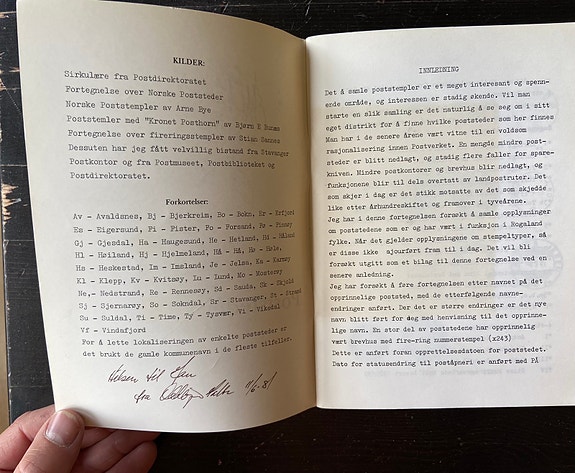 KILDER:
Sirkulære fra Postdirektoratet
Fortegnelse over Norske Poststeder
Norske Poststempler av Arne Bye
Poststemler med "Kronet Posthorn" av Bjørn E
Fortegnelse over fireringsstempler av Stian Sannes
Dessuten har jeg fått velvillig bistand fra Stavanger
Postkontor og fra Postmuseet, Postbiblioteket og
Postdirektoratet.
Forkortelser:
Av - Avaldsnes, Bj - Bjerkreim, Bo - Bokn, Er - Erfjord
Es - Eigersund, Fi - Fister, Fo - Forsand, Fø - Finnøy
Gj - Gjesdal, Ha - Haugesund, He - Hetland, Hl - Håland
Hl - Høiland, Hj - Hjelmeland, HÅ - Hå, Hø - Høle,
Hs - Heskestad, Im - Imsland, Je - Jelsa, Ka - Karmøy
Kl - Klepp, Kv - Kvitsøy, Lu - Lund, Mo - Mosterøy
Ne,- Nedstrand, Re - Rennesøy, Sd - Sauda, Sk - Skjold
Sj - Sjernarøy, So - Sokndal, Sr - Stavanger, St - Strand
Su - Suldal, Ti - Time, Ty - Tysvær, Vi - Vikedal
Vf - Vindafjord
For å lette lokaliseringen av enkelte poststeder er
det brukt de gamle kommunenavn i de fleste tilfeller.
Hilsen til
fra 9/6-81
INNLEDNING
Det å samle poststempler er et meget interesant og spenn-
ende område, og interessen er stadig økende. Vil man
starte en slik samling er det naturlig å se seg om i sitt
eget distrikt for å finne hvilke poststeder som her finnes
Man har i de senere årene vært vitne til en voldsom
rasjonalisering innen Postverket. En mengde mindre post-
steder er blitt nedlagt, og stadig flere faller for spare-
kniven. Mindre postkontorer og brevhus blir nedlagt, og
funksjonene blir til dels overtatt av landpostruter. Det
som skjer i dag er det stikk motsatte av det som skjedde
like etter Århundreskiftet og framover i tyveårene.
Jeg har i denne fortegnelsen forsøkt å samle opplysninger
om poststedene som er og har vært i funksjon i Rogaland
fylke. Når det gjelder opplysningene om stempeltyper, så
er disse ikke ajourført fram til i dag. Det vil bli
forsøkt utgitt som et bilag til denne fortegnelse ved en
senere anledning.
Jeg har forsøkt å føre fortegnelsen etter navnet på det
opprinnelige poststed, med de etterfølgende navne-
endringer anført. Der det er større endringer er det nye
navn blitt ført for deg med henvisning til det opprinne-
lige navn. En stor del av poststedene har opprinnelig
vært brevhus med fire-ring nummerstempel (x243)
Dette er anført foran opprettelsesdatoen for poststedet.
Dato for statusendring til poståpneri er anført med PÅ